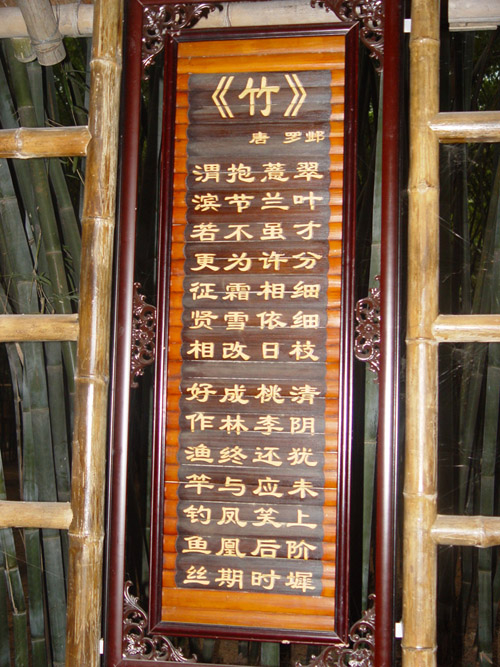 《竹》
唐 罗邺
翠叶才分细细枝 清阴犹未上阶墀
薏兰虽许相依日 桃李还应笑后时
抱节不为霜雪改 成林终与凤凰期
渭滨若更征贤相 好作渔竿钓鱼丝